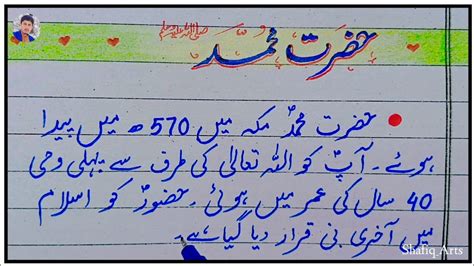 حضرت محمد ﷺ
حضرت محمدؐ مکہ میں 570ء میں پیدا
ہوئے۔ آپؐ کو اللہ تعالٰی کی طرف سے پہلی وحی
40 سال کی عمر میں ہوئی۔ حضورؐ کو اسلام
میں آخری نبی قرار دیا گیا ہے۔
Shafiq_Arts